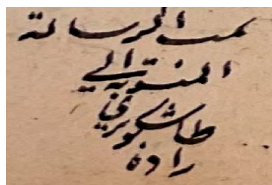 تمت الرسالة
المنسوبة الي
طاشكوبري
زاده